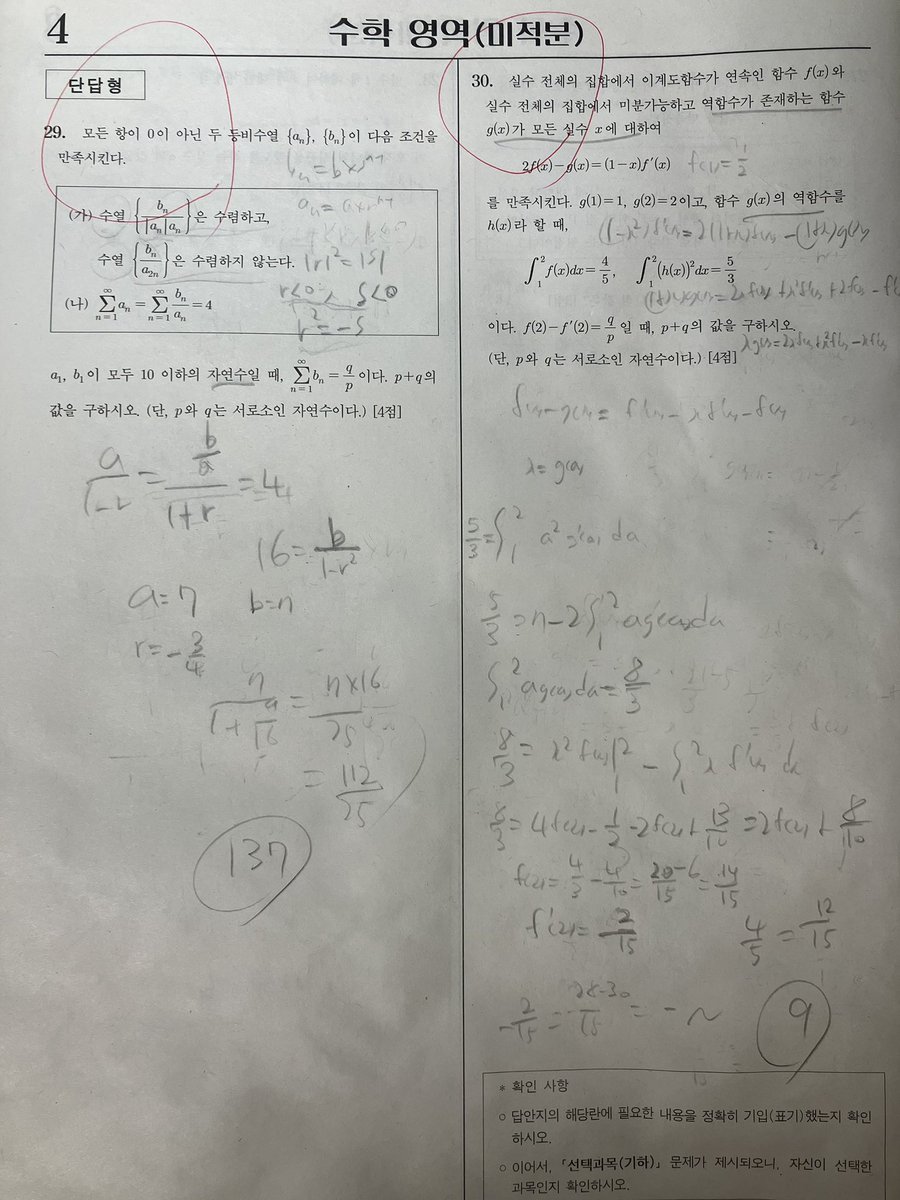 4
수학 영역(미적분)
단답형
29. 모든 항이 0이 아닌 두 등비수열 {aₙ}, {bₙ}이 다음 조건을
만족시킨다.
(가) 수열 {bₙ/|aₙ|aₙ}은 수렴하고,
수열 {bₙ/a₂ₙ}은 수렴하지 않는다.
|r|²=|s|
r<0, s<0
r²=-s
(나) ∑_{n=1}^{∞} aₙ = ∑_{n=1}^{∞} bₙ/aₙ = 4
a₁, b₁이 모두 10 이하의 자연수일 때, ∑_{n=1}^{∞} bₙ = q/p 이다. p+q의
값을 구하시오. (단, p와 q는 서로소인 자연수이다.) [4점]
a/(1-r) = (b/a)/(1+r) = 4
16 = b/(1-r²)
a=7 b=7
r=-3/4
7/(1+9/16) = 7×16/25
= 112/25
137
30. 실수 전체의 집합에서 이계도함수가 연속인 함수 f(x)와
실수 전체의 집합에서 미분가능하고 역함수가 존재하는 함수
g(x)가 모든 실수 x에 대하여
2f(x)-g(x)=(1-x)f′(x)
f(1)=1/2
를 만족시킨다. g(1)=1, g(2)=2이고, 함수 g(x)의 역함수를
h(x)라 할 때,
∫₁² f(x)dx=4/5, ∫₁² (h(x))²dx=5/3
이다. f(2)-f′(2)=q/p 일 때, p+q의 값을 구하시오.
(단, p와 q는 서로소인 자연수이다.) [4점]
x=g(a)
5/3=∫₁² a²g′(a) da
5/3=7-2∫₁² ag(a)da
∫₁² ag(a)da=8/3
8/3 = x²f(x)|₁² - ∫₁² x f′(x) dx
8/3=4f(2)-1/2-2f(2)+13/10=2f(2)+8/10
f(2)=4/3-4/10=20-6/15=14/15
f′(2)=2/15
4/5=12/15
-2/15=28-30/15=-~
9
* 확인 사항
○ 답안지의 해당란에 필요한 내용을 정확히 기입(표기)했는지 확인
하시오.
○ 이어서, 「선택과목(기하)」 문제가 제시되오니, 자신이 선택한
과목인지 확인하시오.